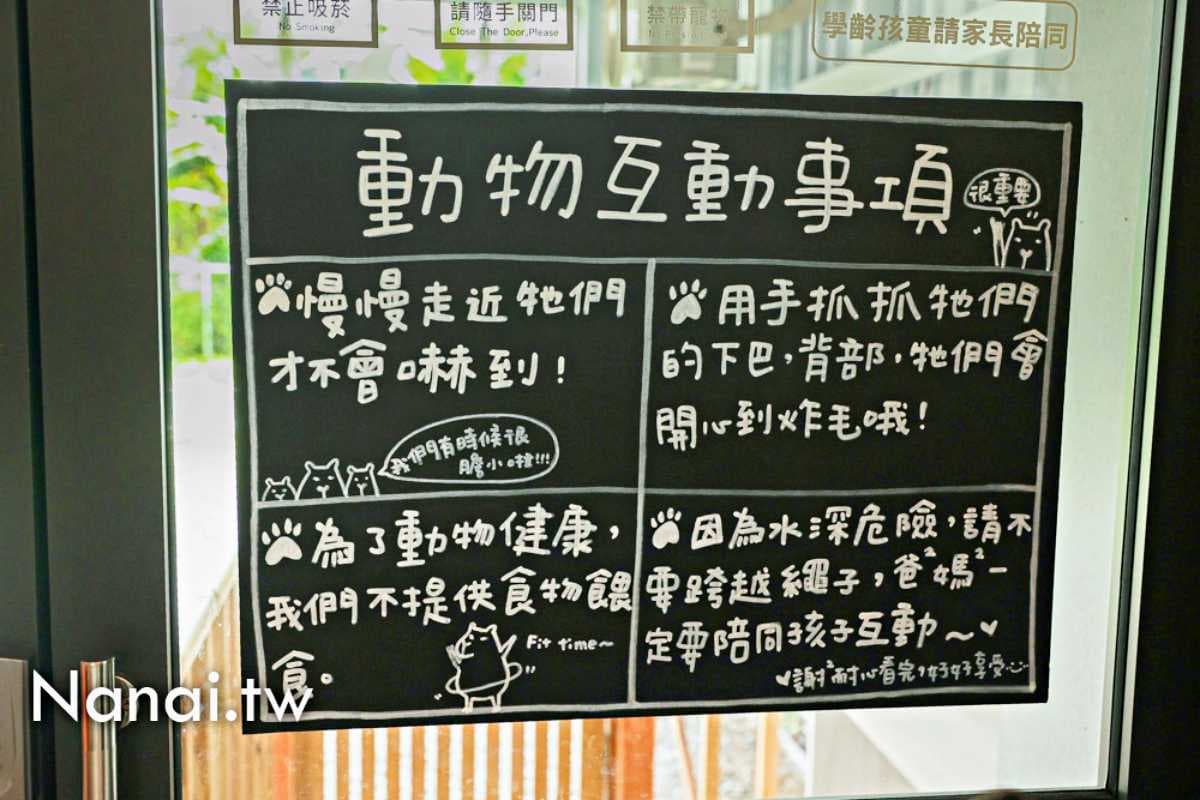 禁止吸菸
No Smoking
請隨手關門
Close The Door,Please
禁帶寵物
學齡孩童請家長陪同
動物互動事項
很重要
慢慢走近牠們
才不會嚇到!
我們有時候很
膽小啦!!!
用手抓抓牠們
的下巴,背部,牠們會
開心到炸毛哦!
為了動物健康,
我們不提供食物餵
食。
Fit time~
因為水深危險,請不
要跨越繩子,爸²媽²一
定要陪同孩子互動~♥
♥謝²耐心看完,好好享受
Nanai.tw